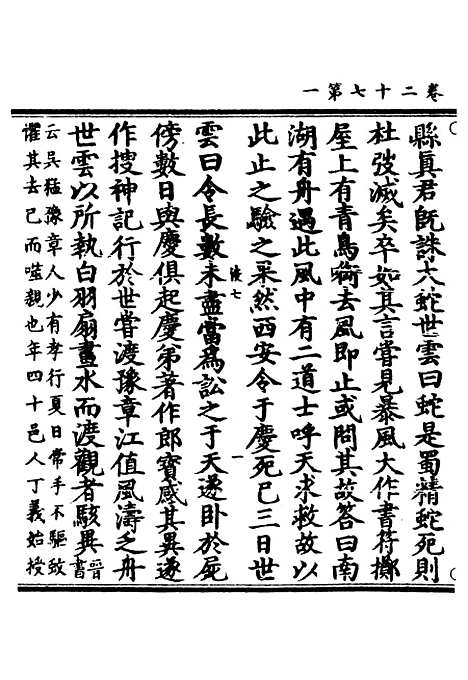 卷二十七第一
縣真君既誅大蛇世雲曰蛇是蜀精蛇死則
杜弢滅矣卒如其言嘗見暴風大作書符擲
屋上有青鳥銜去風即止或問其故答曰南
湖有舟遇此風中有二道士呼天求救故以
此止之驗之果然西安令于慶死已三日世
陵七
一
雲曰令長數未盡當為訟之于天遂卧於屍
傍數日與慶俱起慶弟著作郎寶感其異遂
作搜神記行於世嘗渡豫章江值風濤乏舟
世雲以所執白羽扇畫水而渡觀者駭異晉書
云吳猛豫章人少有孝行夏日常手不驅蚊
懼其去己而噬親也年四十邑人丁義始授